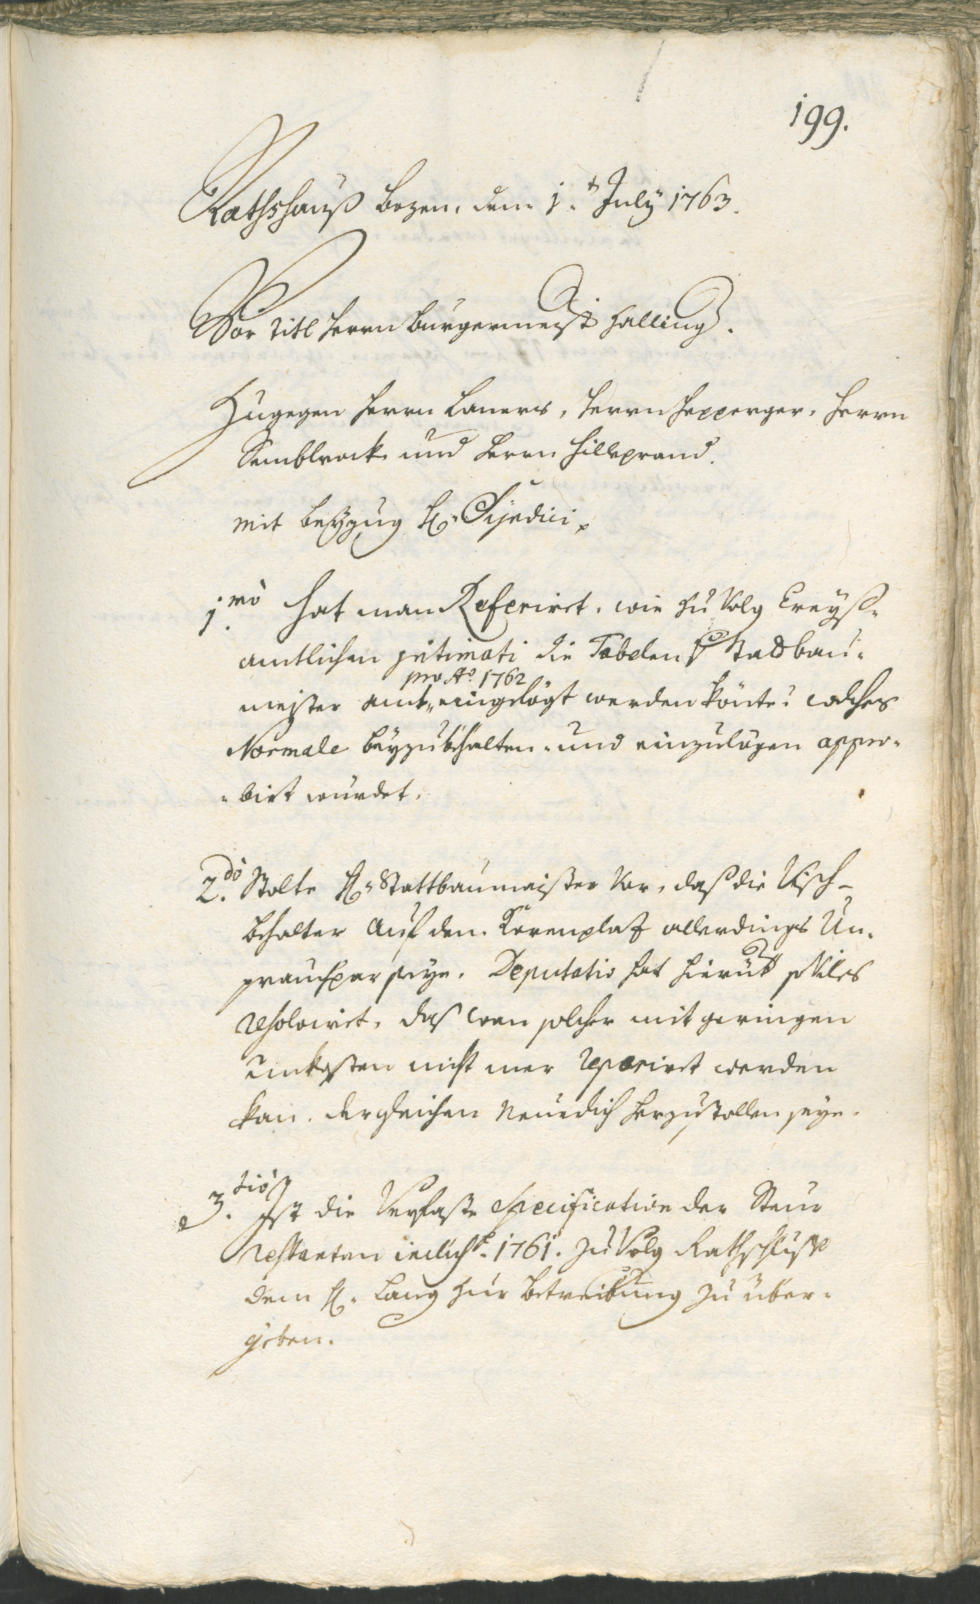 199.
Rathshauß Bozen, den 1.t July 1763.
Vor Titl Herrn Burgermeist Halling.
Zugegen Herrn Laners, Herrn Hepperger, Herrn
Semblrock und Herrn Hilleprand.
mit beyzug H. Syndici
1.mo hat man Referirt, wie zu Volg Creyß-
amtlichen intimati die Tabelen Stadbau-
pro Ao. 1762
meister amt, eingelögt werden könte? welches
Normale beyzubehalten und einzulögen appro-
birt wurdet.
2.do Stolte H. Stattbaumeister vor, daß die Visch-
behalter Auf den Korenplatz allerdings Un-
prauchpar seye. Deputatio hat hierüb
resolvirt, daß wan solcher mit geringen
Unkosten nicht mer reparirt werden
kan, dergleichen neuedich herzustollen seye.
3.tio Ist die Verfaste Specification der Steur
restanten 1761. zu Volg Rathschluß
dem H. Lang zur betreibung zu über-
geben.